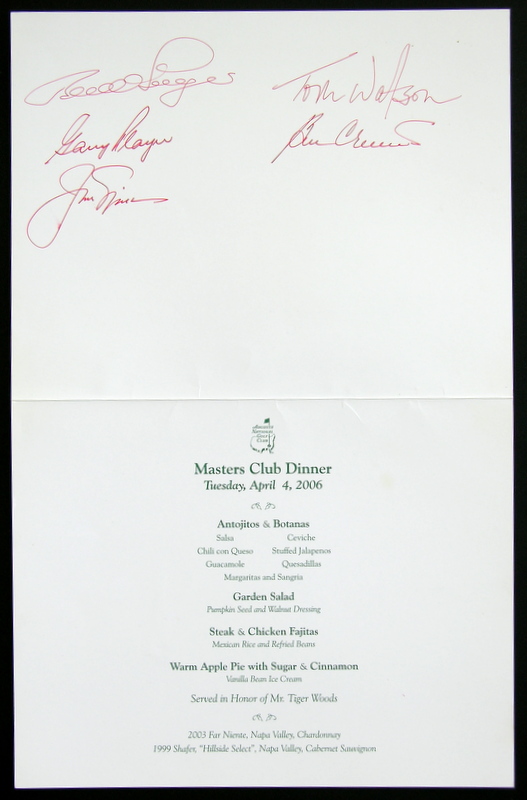 Gary Player
Tom Watson
Ben Crenshaw
Augusta
National
Golf
Club
Masters Club Dinner
Tuesday, April 4, 2006
Antojitos & Botanas
Salsa Ceviche
Chili con Queso Stuffed Jalapenos
Guacamole Quesadillas
Margaritas and Sangria
Garden Salad
Pumpkin Seed and Walnut Dressing
Steak & Chicken Fajitas
Mexican Rice and Refried Beans
Warm Apple Pie with Sugar & Cinnamon
Vanilla Bean Ice Cream
Served in Honor of Mr. Tiger Woods
2003 Far Niente, Napa Valley, Chardonnay
1999 Shafer, "Hillside Select", Napa Valley, Cabernet Sauvignon